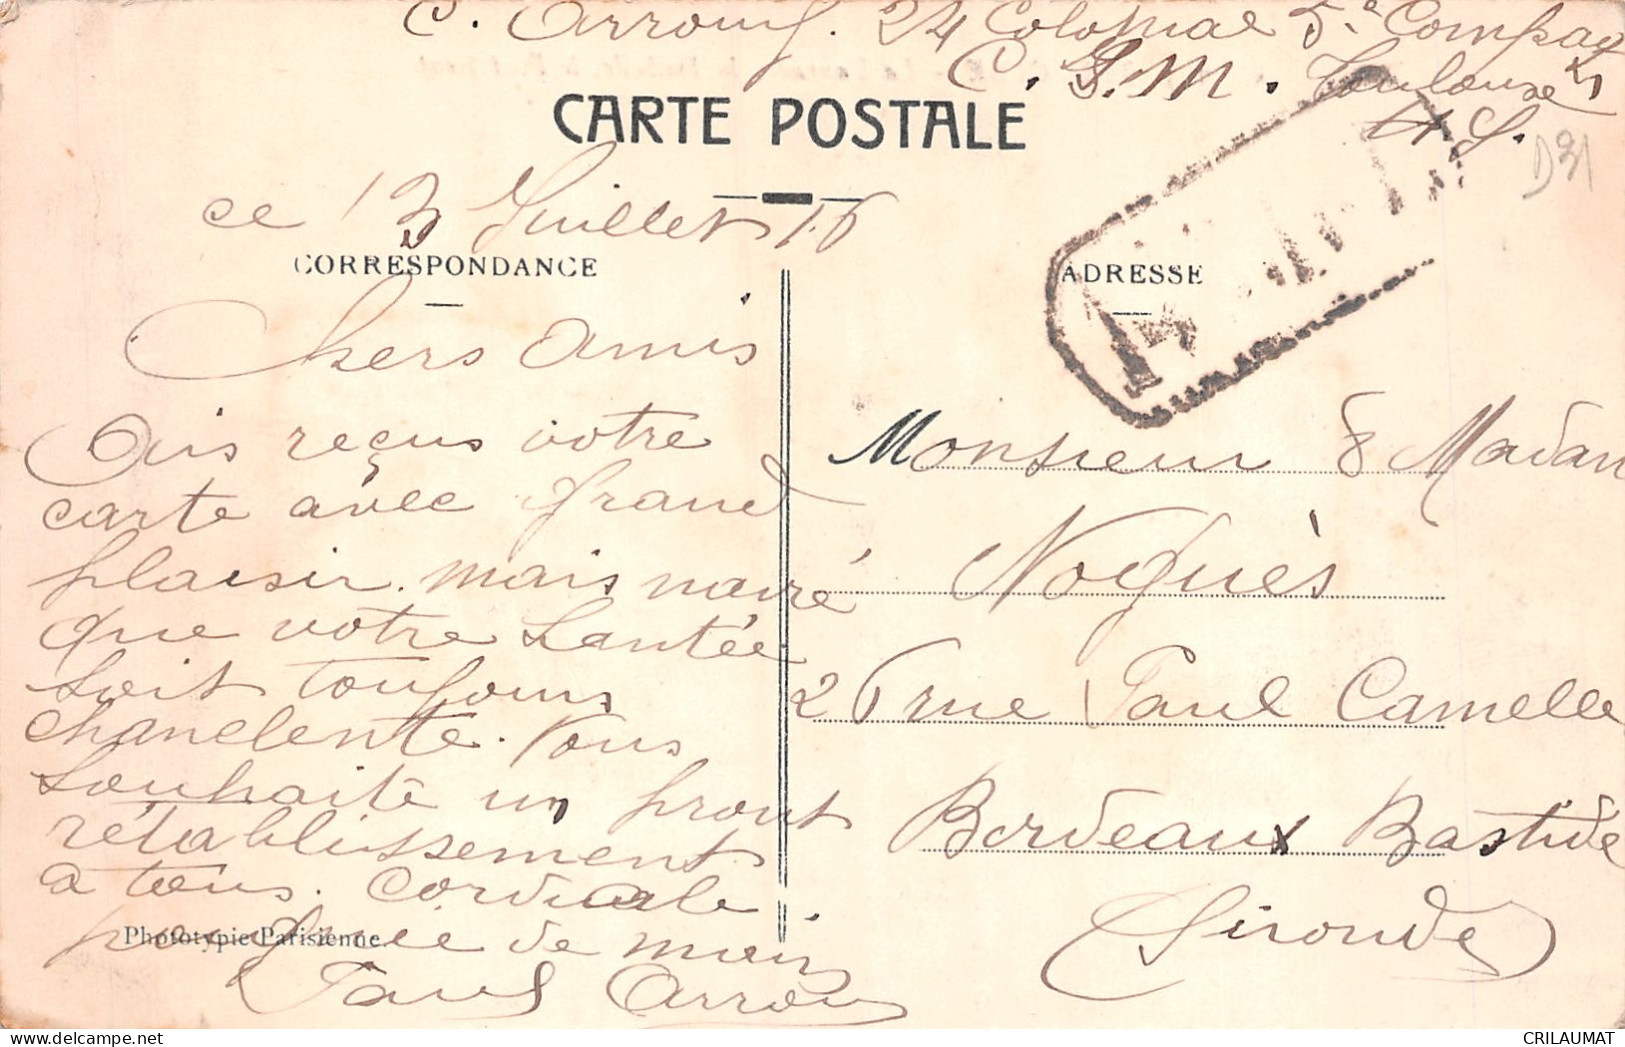 C. Arrouy. 24 Colonial 5e Compag
C. I. M. Toulouse
H G.
D31
CARTE POSTALE
ce 13 Juillet 16
CORRESPONDANCE
ADRESSE
Chers Amis
Ais reçus votre
carte avec grand
plaisir. mais navré
que votre santée
soit toujours
chanelente. Vous
souhaite un pront
rétablissement
a tous. Cordiale
poignée de main
Paul Arrouy
Phototypie Parisienne
Monsieur & Madan
Noguès
26 rue Paul Camelle
Bordeaux Bastide
Gironde
CRILAUMAT